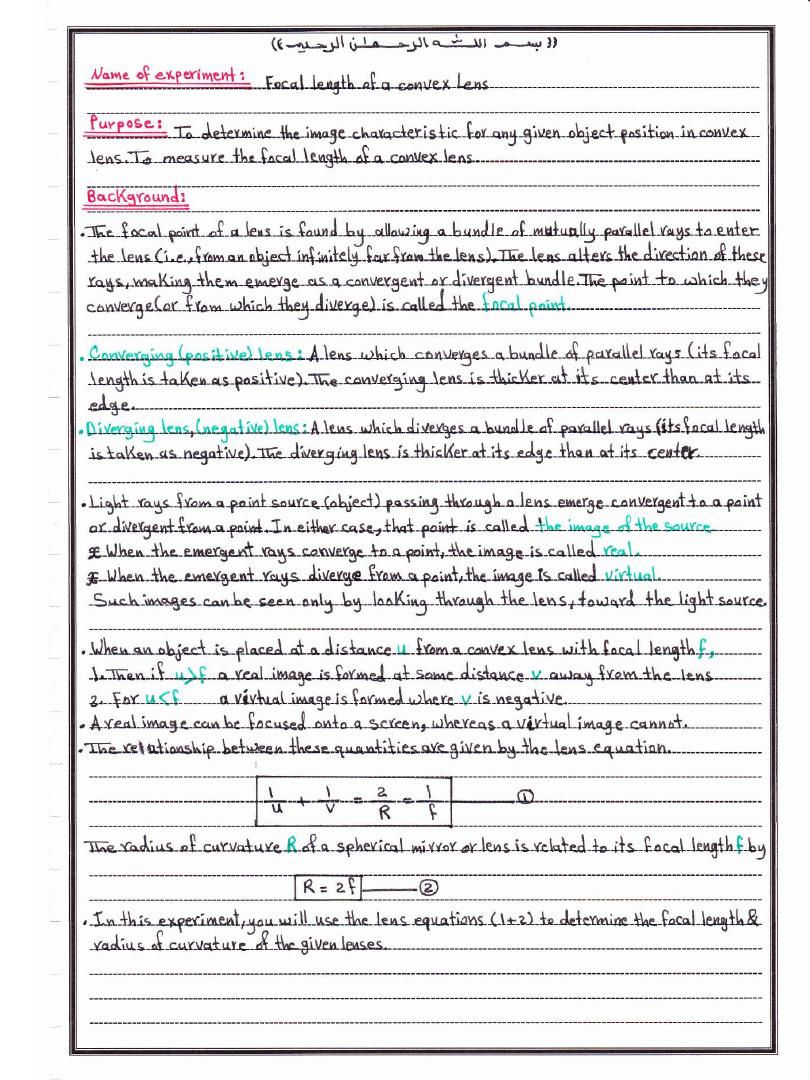 (( بسم الله الرحمان الرحيم ))
Name of experiment: Focal length of a convex Lens
Purpose: To determine the image characteristic for any given object position in convex
lens. To measure the focal length of a convex lens.
Background:
• The focal point of a lens is found by allowing a bundle of mutually parallel rays to enter
the lens (i.e., from an object infinitely far from the lens). The lens alters the direction of these
rays, making them emerge as a convergent or divergent bundle. The point to which they
converge (or from which they diverge) is called the focal point.
• Converging (positive) lens: A lens which converges a bundle of parallel rays (its focal
length is taken as positive). The converging lens is thicker at its center than at its
edge.
• Diverging lens, (negative) lens: A lens which diverges a bundle of parallel rays (its focal length
is taken as negative). The diverging lens is thicker at its edge than at its center.
• Light rays from a point source (object) passing through a lens emerge convergent to a point
or divergent from a point. In either case, that point is called the image of the source
* When the emergent rays converge to a point, the image is called real.
* When the emergent rays diverge from a point, the image is called virtual.
Such images can be seen only by looking through the lens, toward the light source.
• When an object is placed at a distance u from a convex lens with focal length f,
1. Then if u>f a real image is formed at some distance v away from the lens
2. For u<f a virtual image is formed where v is negative.
• A real image can be focused onto a screen, whereas a virtual image cannot.
• The relationship between these quantities are given by the lens equation.
1/u + 1/v = 2/R = 1/f ①
The radius of curvature R of a spherical mirror or lens is related to its focal length f by
R = 2f ②
• In this experiment, you will use the lens equations (1+2) to determine the focal length &
radius of curvature of the given lenses.